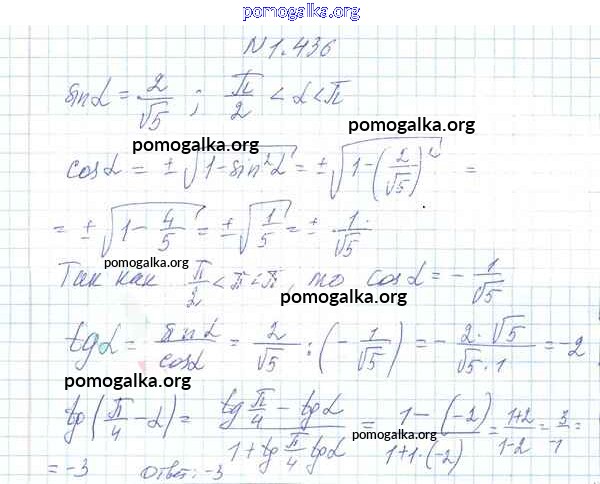 pomogalka.org
N 1.436
sin α = 2/√5 ; π/2 < α < π
pomogalka.org
pomogalka.org
cos α = ± √(1 - sin²α) = ± √(1 - (2/√5)²) =
pomogalka.org
= ± √(1 - 4/5) = ± √(1/5) = ± 1/√5
pomogalka.org
Так как π/2 < π < π, то cos α = - 1/√5
pomogalka.org
tg α = sin α/cos α = 2/√5 : (- 1/√5) = - 2·√5/√5·1 = -2
pomogalka.org
pomogalka.org
tg(π/4 - α) = (tg π/4 - tg α)/(1 + tg π/4 tg α) = (1 - (-2))/(1 + 1·(-2)) = (1+2)/(1-2) = 3/-1 =
pomogalka.org
= -3 Ответ: -3